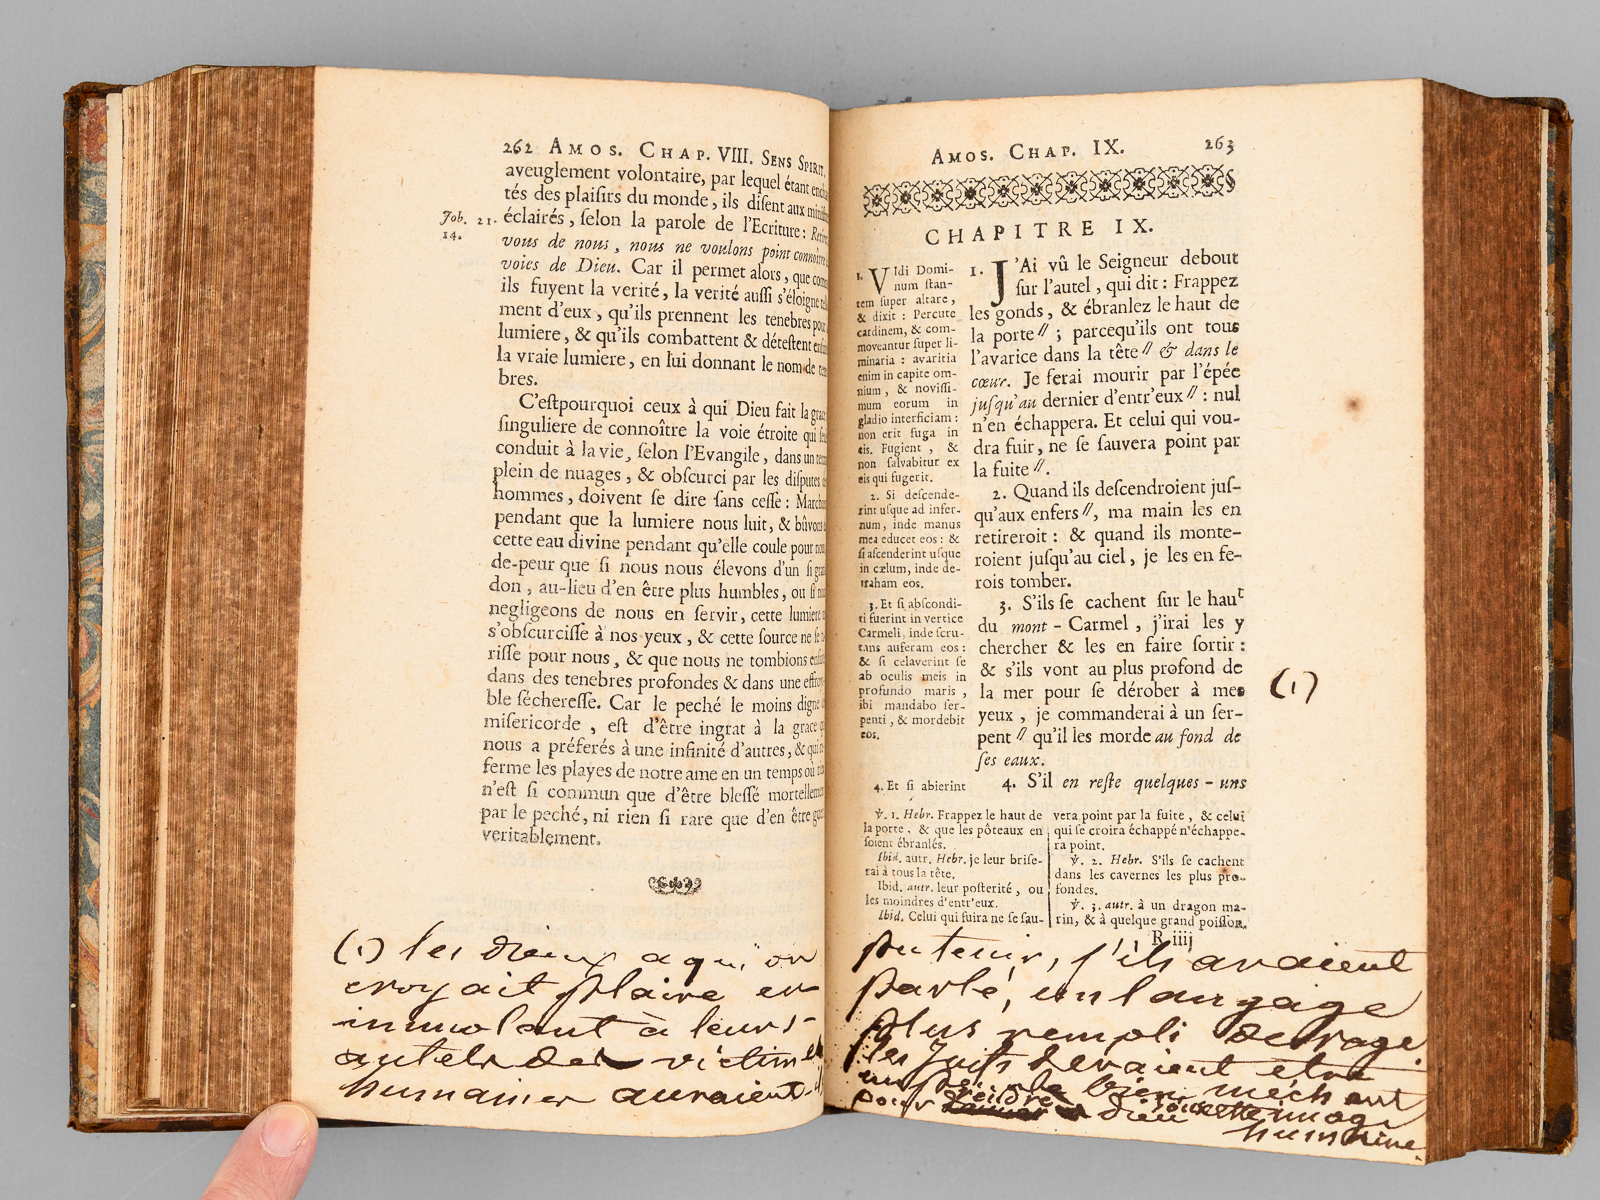 262 AMOS. CHAP. VIII. SENS SPIRIT.
aveuglement volontaire, par lequel étant
tés des plaisirs du monde, ils disent aux
éclairés, selon la parole de l'Ecriture:
Job. 21.
14.
vous de nous, nous ne voulons point connoître
voies de Dieu. Car il permet alors, que
ils fuyent la verité, la verité aussi s'éloigne
ment d'eux, qu'ils prennent les tenebres pour
lumiere, & qu'ils combattent & détestent
la vraie lumiere, en lui donnant le nom de
bres.
C'estpourquoi ceux à qui Dieu fait la
singuliere de connoître la voie étroite qui
conduit à la vie, selon l'Evangile, dans un
plein de nuages, & obscurci par les disputes
hommes, doivent se dire sans cesse:
pendant que la lumiere nous luit, &
cette eau divine pendant qu'elle coule pour
de-peur que si nous nous élevons d'un si
don, au-lieu d'en être plus humbles, ou si
negligeons de nous en servir, cette lumiere
s'obscurcisse à nos yeux, & cette source ne se
risse pour nous, & que nous ne tombions
dans des tenebres profondes & dans une
ble sécheresse. Car le peché le moins digne
misericorde, est d'être ingrat à la grace
nous a préferés à une infinité d'autres, &
ferme les playes de notre ame en un temps où
n'est si commun que d'être blessé
par le peché, ni rien si rare que d'en être
veritablement.
(1) les dieux a qui on
croyait plaire en
immolant à leurs
autels des victimes
humaines auraient
AMOS. CHAP. IX. 263
CHAPITRE IX.
1. VIdi Domi-
num stan-
tem super altare,
& dixit: Percute
cardinem, & com-
moveantur super li-
minaria: avaritia
enim in capite om-
nium, & novissi-
mum eorum in
gladio interficiam:
non erit fuga in
eis. Fugient, &
non salvabitur ex
eis qui fugerit.
2. Si descende-
rint usque ad infer-
num, inde manus
mea educet eos: &
si ascenderint usque
in cælum, inde de-
traham eos.
3. Et si abscondi-
ti fuerint in vertice
Carmeli, inde scru-
tans auferam eos:
& si celaverint se
ab oculis meis in
profundo maris,
ibi mandabo ser-
penti, & mordebit
eos.
4. Et si abierint
1. J'Ai vû le Seigneur debout
sur l'autel, qui dit: Frappez
les gonds, & ébranlez le haut de
la porte //; parcequ'ils ont tous
l'avarice dans la tête // & dans le
cœur. Je ferai mourir par l'épée
jusqu'au dernier d'entr'eux //: nul
n'en échappera. Et celui qui vou-
dra fuir, ne se sauvera point par
la fuite //.
2. Quand ils descendroient jus-
qu'aux enfers //, ma main les en
retireroit: & quand ils monte-
roient jusqu'au ciel, je les en fe-
rois tomber.
3. S'ils se cachent sur le haut
du mont-Carmel, j'irai les y
chercher & les en faire sortir:
& s'ils vont au plus profond de
la mer pour se dérober à mes
yeux, je commanderai à un ser-
pent // qu'il les morde au fond de
ses eaux.
4. S'il en reste quelques-uns
(1)
℣. 1. Hebr. Frappez le haut de
la porte, & que les pôteaux en
soient ébranlés.
Ibid. autr. Hebr. je leur brise-
rai à tous la tête.
Ibid. autr. leur posterité, ou
les moindres d'entr'eux.
Ibid. Celui qui fuira ne se sau-
vera point par la fuite, & celui
qui se croira échappé n'échappe-
ra point.
℣. 2. Hebr. S'ils se cachent
dans les cavernes les plus pro-
fondes.
℣. 3. autr. à un dragon ma-
rin, & à quelque grand poisson.
R iiij
pu tenir, s'ils avaient
parlé, un langage
plus rempli de rage.
les Juifs devaient etre
un peuple bien méchant
pour peindre dieu sous cette image
humaine.